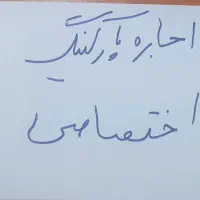 اجاره پارکینگ
اختصاصی